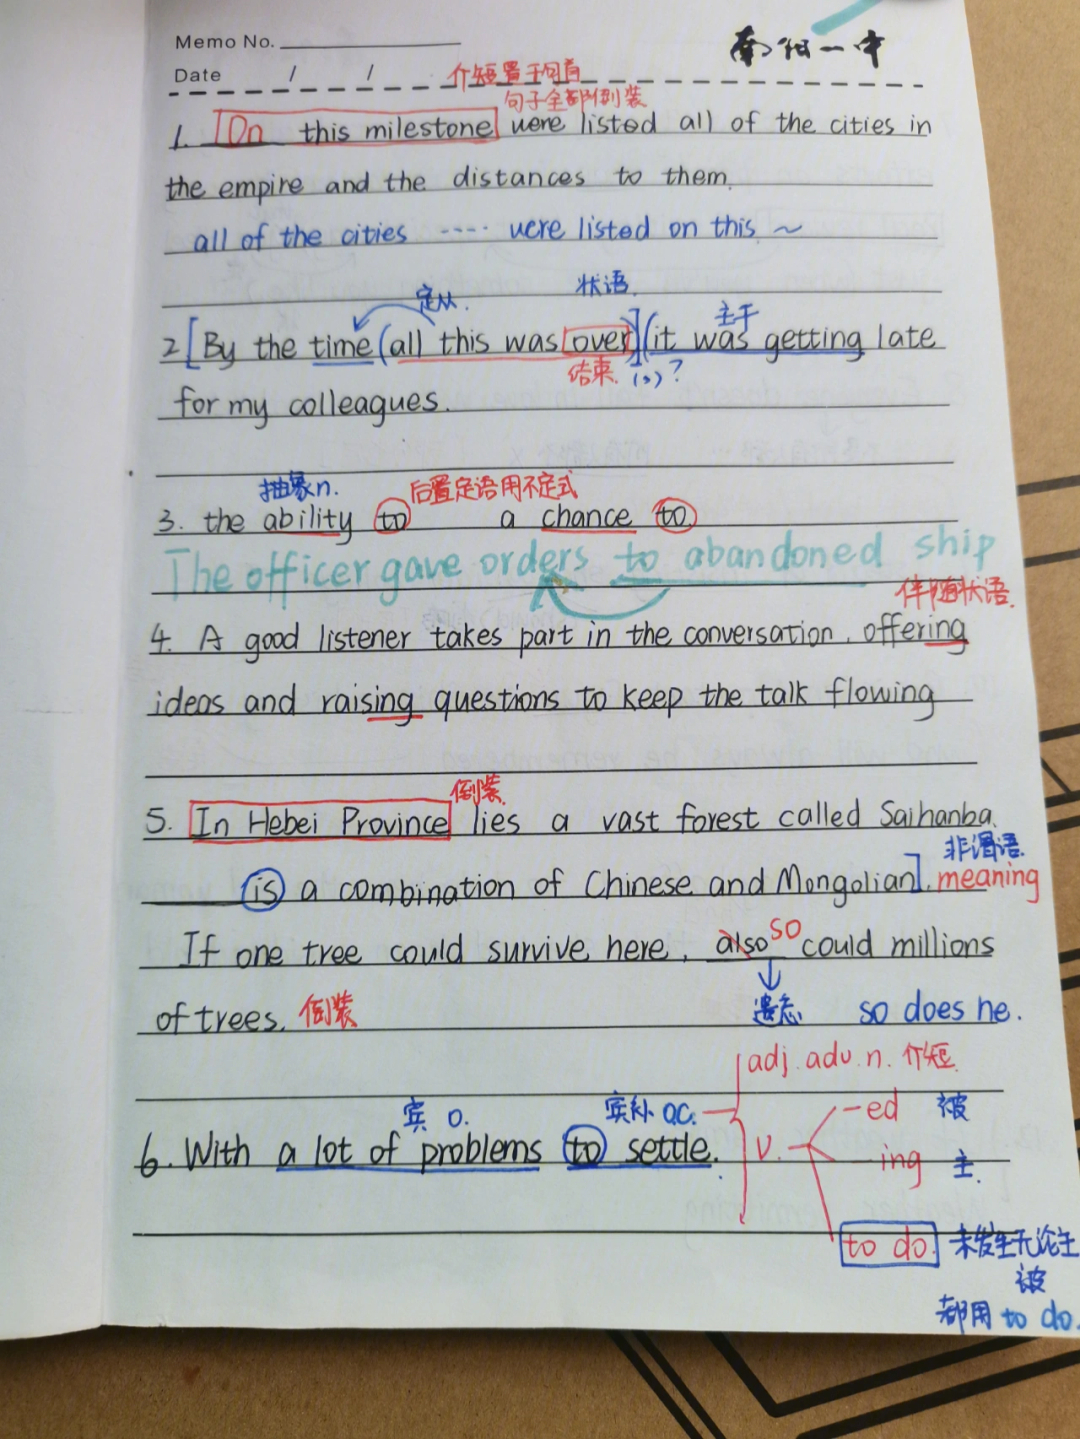 Memo No.
南组一中
Date / /
介短置于句首
句子全部倒装
1. On this milestone were listed all of the cities in
the empire and the distances to them.
all of the cities ···· were listed on this ~
定从. 状语. 主干
2 [By the time (all this was over)] (it was getting late
结束. (s)?
for my colleagues.
抽象n. 后置定语用不定式
3. the ability to a chance to
The officer gave orders to abandoned ship
伴随状语.
4. A good listener takes part in the conversation, offering
ideas and raising questions to keep the talk flowing
倒装
5. In Hebei Province lies a vast forest called Saihanba.
非谓语.
is a combination of Chinese and Mongolian]. meaning
If one tree could survive here, also so could millions
of trees. 倒装 遗忘 so does he.
adj. adv. n. 介短.
宾 O. 宾补 OC. -ed 被
6. With a lot of problems to settle. V. ing 主.
to do. 未发生无论主
被
都用 to do.